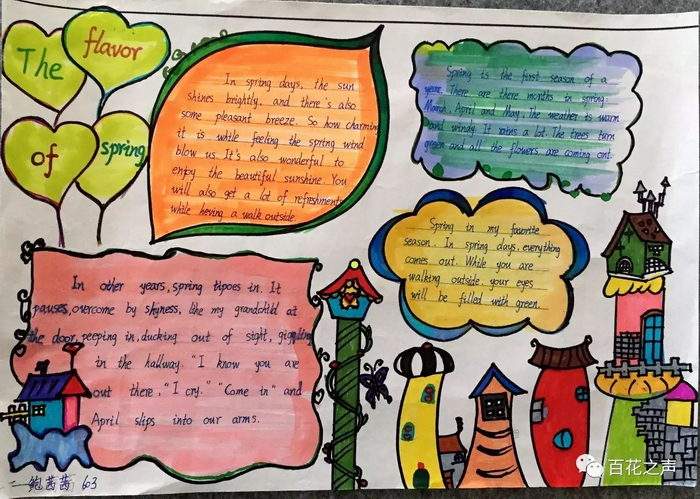 The flavor
of spring
In spring days, the sun
shines brightly, and there's also
some pleasant breeze. So how charming
it is while feeling the spring wind
blow us. It's also wonderful to
enjoy the beautiful sunshine. You
will also get a lot of refreshments
while heving a walk outside.
Spring is the first season of a
year. There are there months in spring:
March, April and May. The weather is warm
and windy. It rains a lot. The trees turn
green and all the flowers are coming out.
Spring in my favorite
season. In spring days, everything
comes out. While you are
walking outside your eyes
will be filled with green.
In other years, spring tipoes in. It
pauses, overcome by shyness, like my grandchild at
the door, peeping in, ducking out of sight, giggling
in the hallway. "I know you are
out there, "I cry." "Come in" and
April slips into our arms.
鲍茜茜 603
百花之声